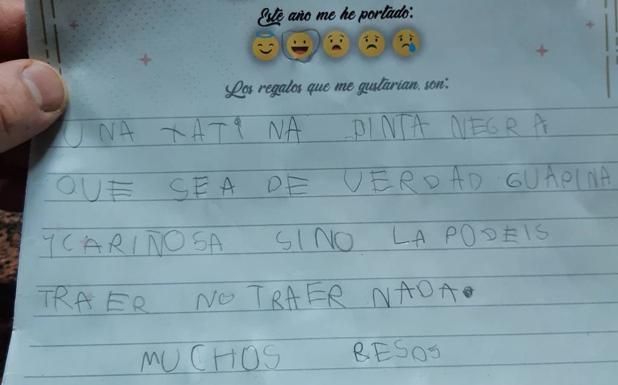 Este año me he portado:
Los regalos que me gustarían, son:
UNA XATI NA PINTA NEGRA
QUE SEA DE VERDAD GUAPINA
Y CARIÑOSA SINO LA PODEIS
TRAER NO TRAER NADA.
MUCHOS BESOS